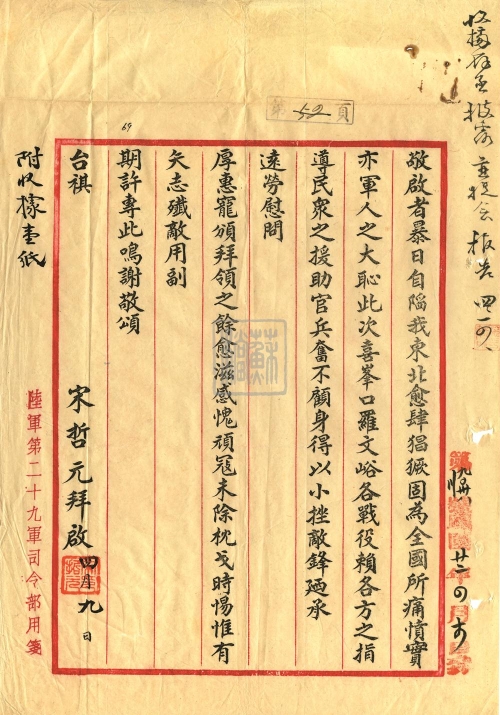 收據存並披露並提會報告 四一〇
第52頁
69
敬啟者暴日自陷我東北愈肆猖獗固為全國所痛憤實
亦軍人之大恥此次喜峯口羅文峪各戰役賴各方之指
導民衆之援助官兵奮不顧身得以小挫敵鋒迺承
遠勞慰問
厚惠寵頒拜領之餘愈滋感愧頑冦未除枕戈時惕惟有
矢志殲敵用副
期許專此鳴謝敬頌
台祺
宋哲元拜啟 四月九日
附收據壹紙
陸軍第二十九軍司令部用箋